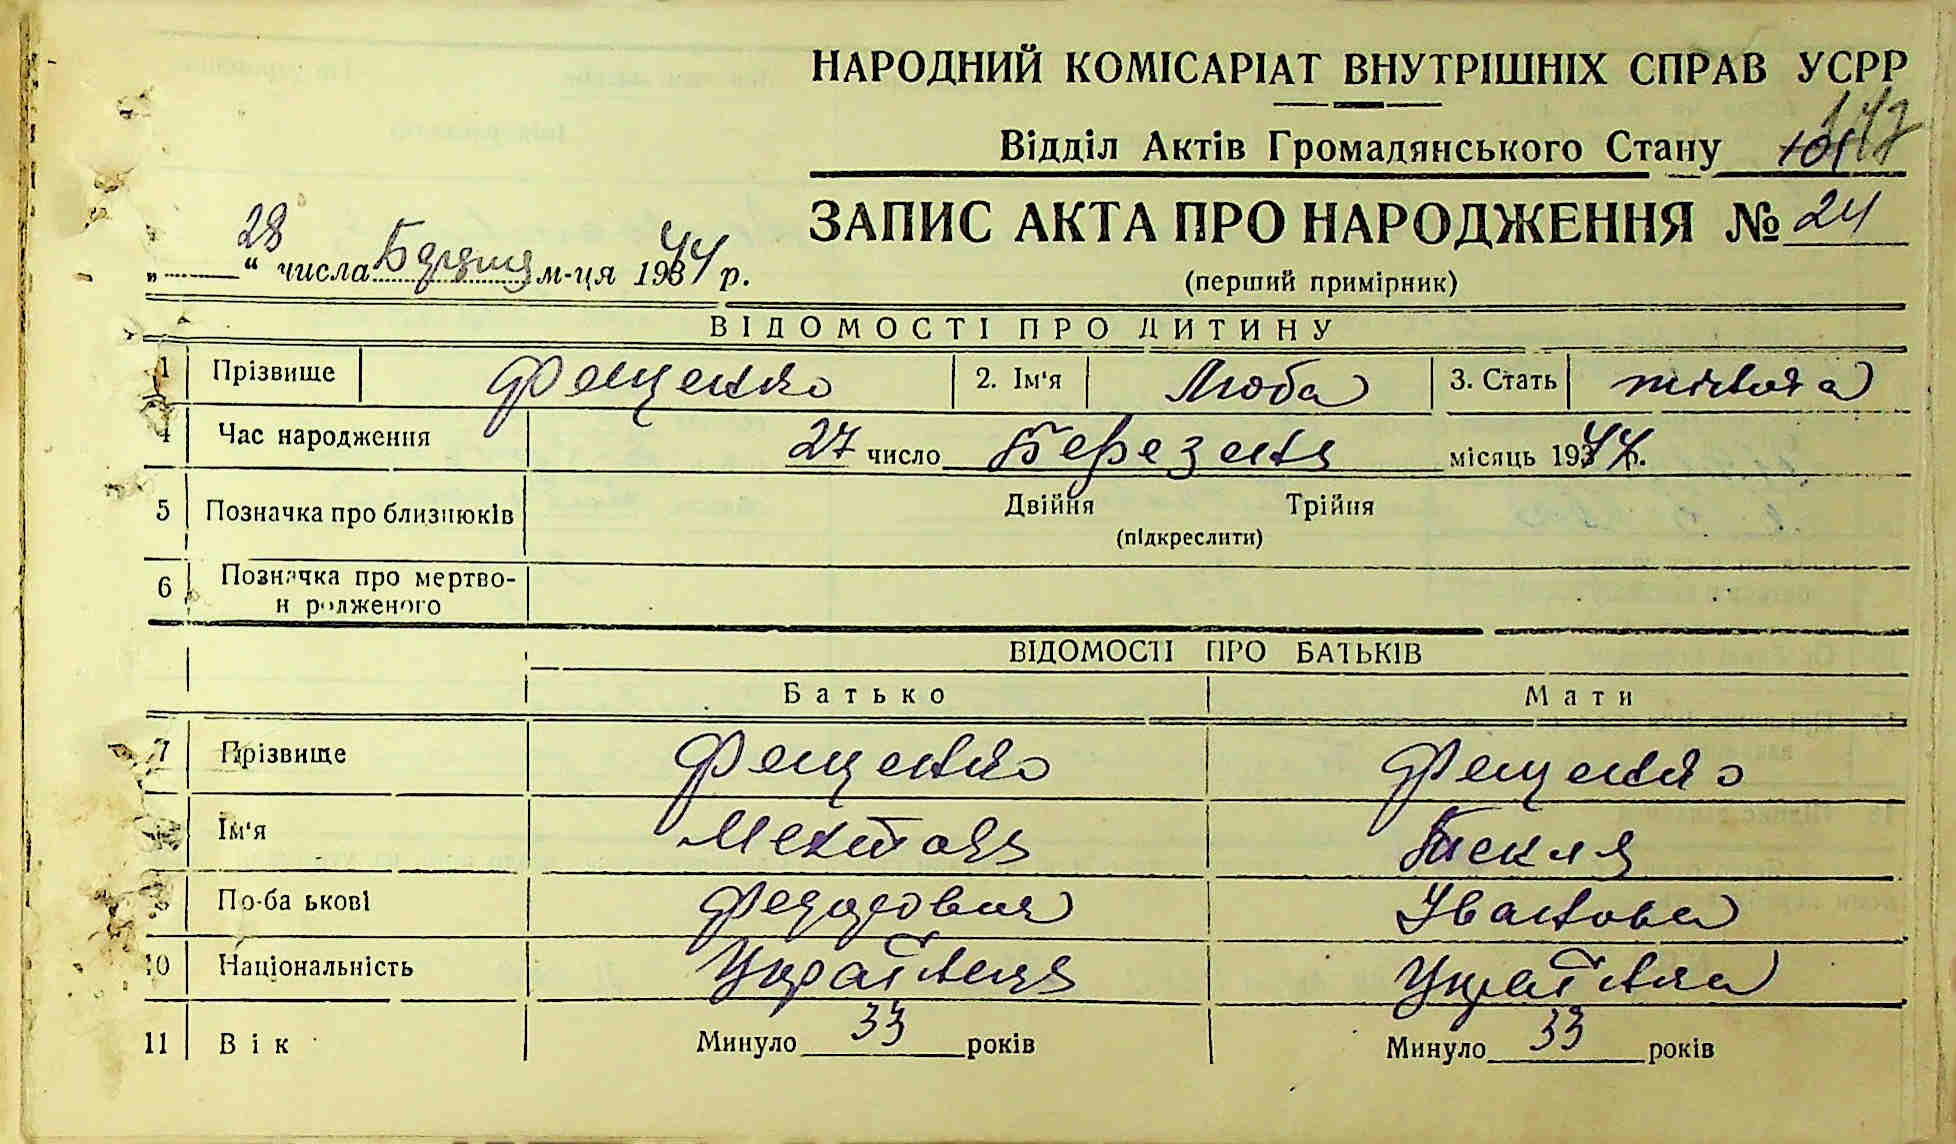 НАРОДНИЙ КОМІСАРІАТ ВНУТРІШНІХ СПРАВ УСРР
Відділ Актів Громадянського Стану
ЗАПИС АКТА ПРО НАРОДЖЕННЯ № 24
„ 28 “ числа м-ця 1944 р.
(перший примірник)
ВІДОМОСТІ ПРО ДИТИНУ
1 Прізвище Фещенко 2. Ім'я Люба 3. Стать жіноча
4 Час народження 27 число Березня місяць 1944 р.
5 Позначка про близнюків Двійня Трійня
(підкреслити)
6 Позначка про мертво-
н родженого
ВІДОМОСТІ ПРО БАТЬКІВ
Батько Мати
7 Прізвище Фещенко Фещенко
Ім'я Текля
По-ба ькові Івановна
10 Національність Українець Українка
11 Вік Минуло 33 років Минуло 33 років